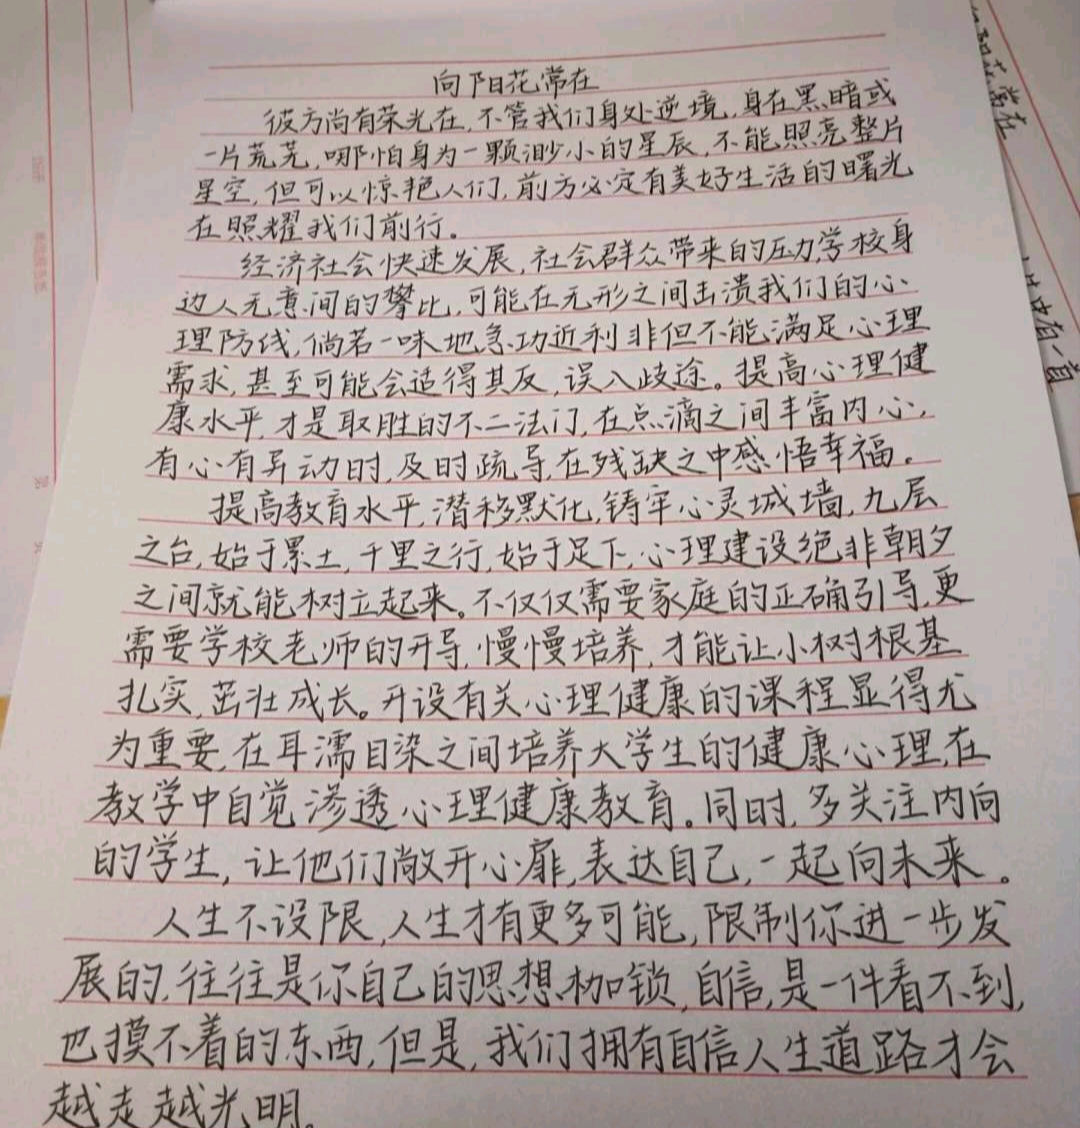 向阳花常在
彼方尚有荣光在,不管我们身处逆境,身在黑暗或
一片荒芜,哪怕身为一颗渺小的星辰,不能照亮整片
星空,但可以惊艳人们,前方必定有美好生活的曙光
在照耀我们前行。
经济社会快速发展,社会群众带来的压力,学校身
边人无意间的攀比,可能在无形之间击溃我们的心
理防线,倘若一味地急功近利非但不能满足心理
需求,甚至可能会适得其反,误入歧途。提高心理健
康水平,才是取胜的不二法门,在点滴之间丰富内心,
有心有异动时,及时疏导,在残缺之中感悟幸福。
提高教育水平,潜移默化,铸牢心灵城墙,九层
之台,始于累土,千里之行,始于足下,心理建设绝非朝夕
之间就能树立起来。不仅仅需要家庭的正确引导,更
需要学校老师的开导,慢慢培养,才能让小树根基
扎实,茁壮成长。开设有关心理健康的课程显得尤
为重要,在耳濡目染之间培养大学生的健康心理,在
教学中自觉渗透心理健康教育。同时,多关注内向
的学生,让他们敞开心扉,表达自己,一起向未来。
人生不设限,人生才有更多可能,限制你进一步发
展的,往往是你自己的思想枷锁,自信,是一件看不到,
也摸不着的东西,但是,我们拥有自信人生道路才会
越走越光明。